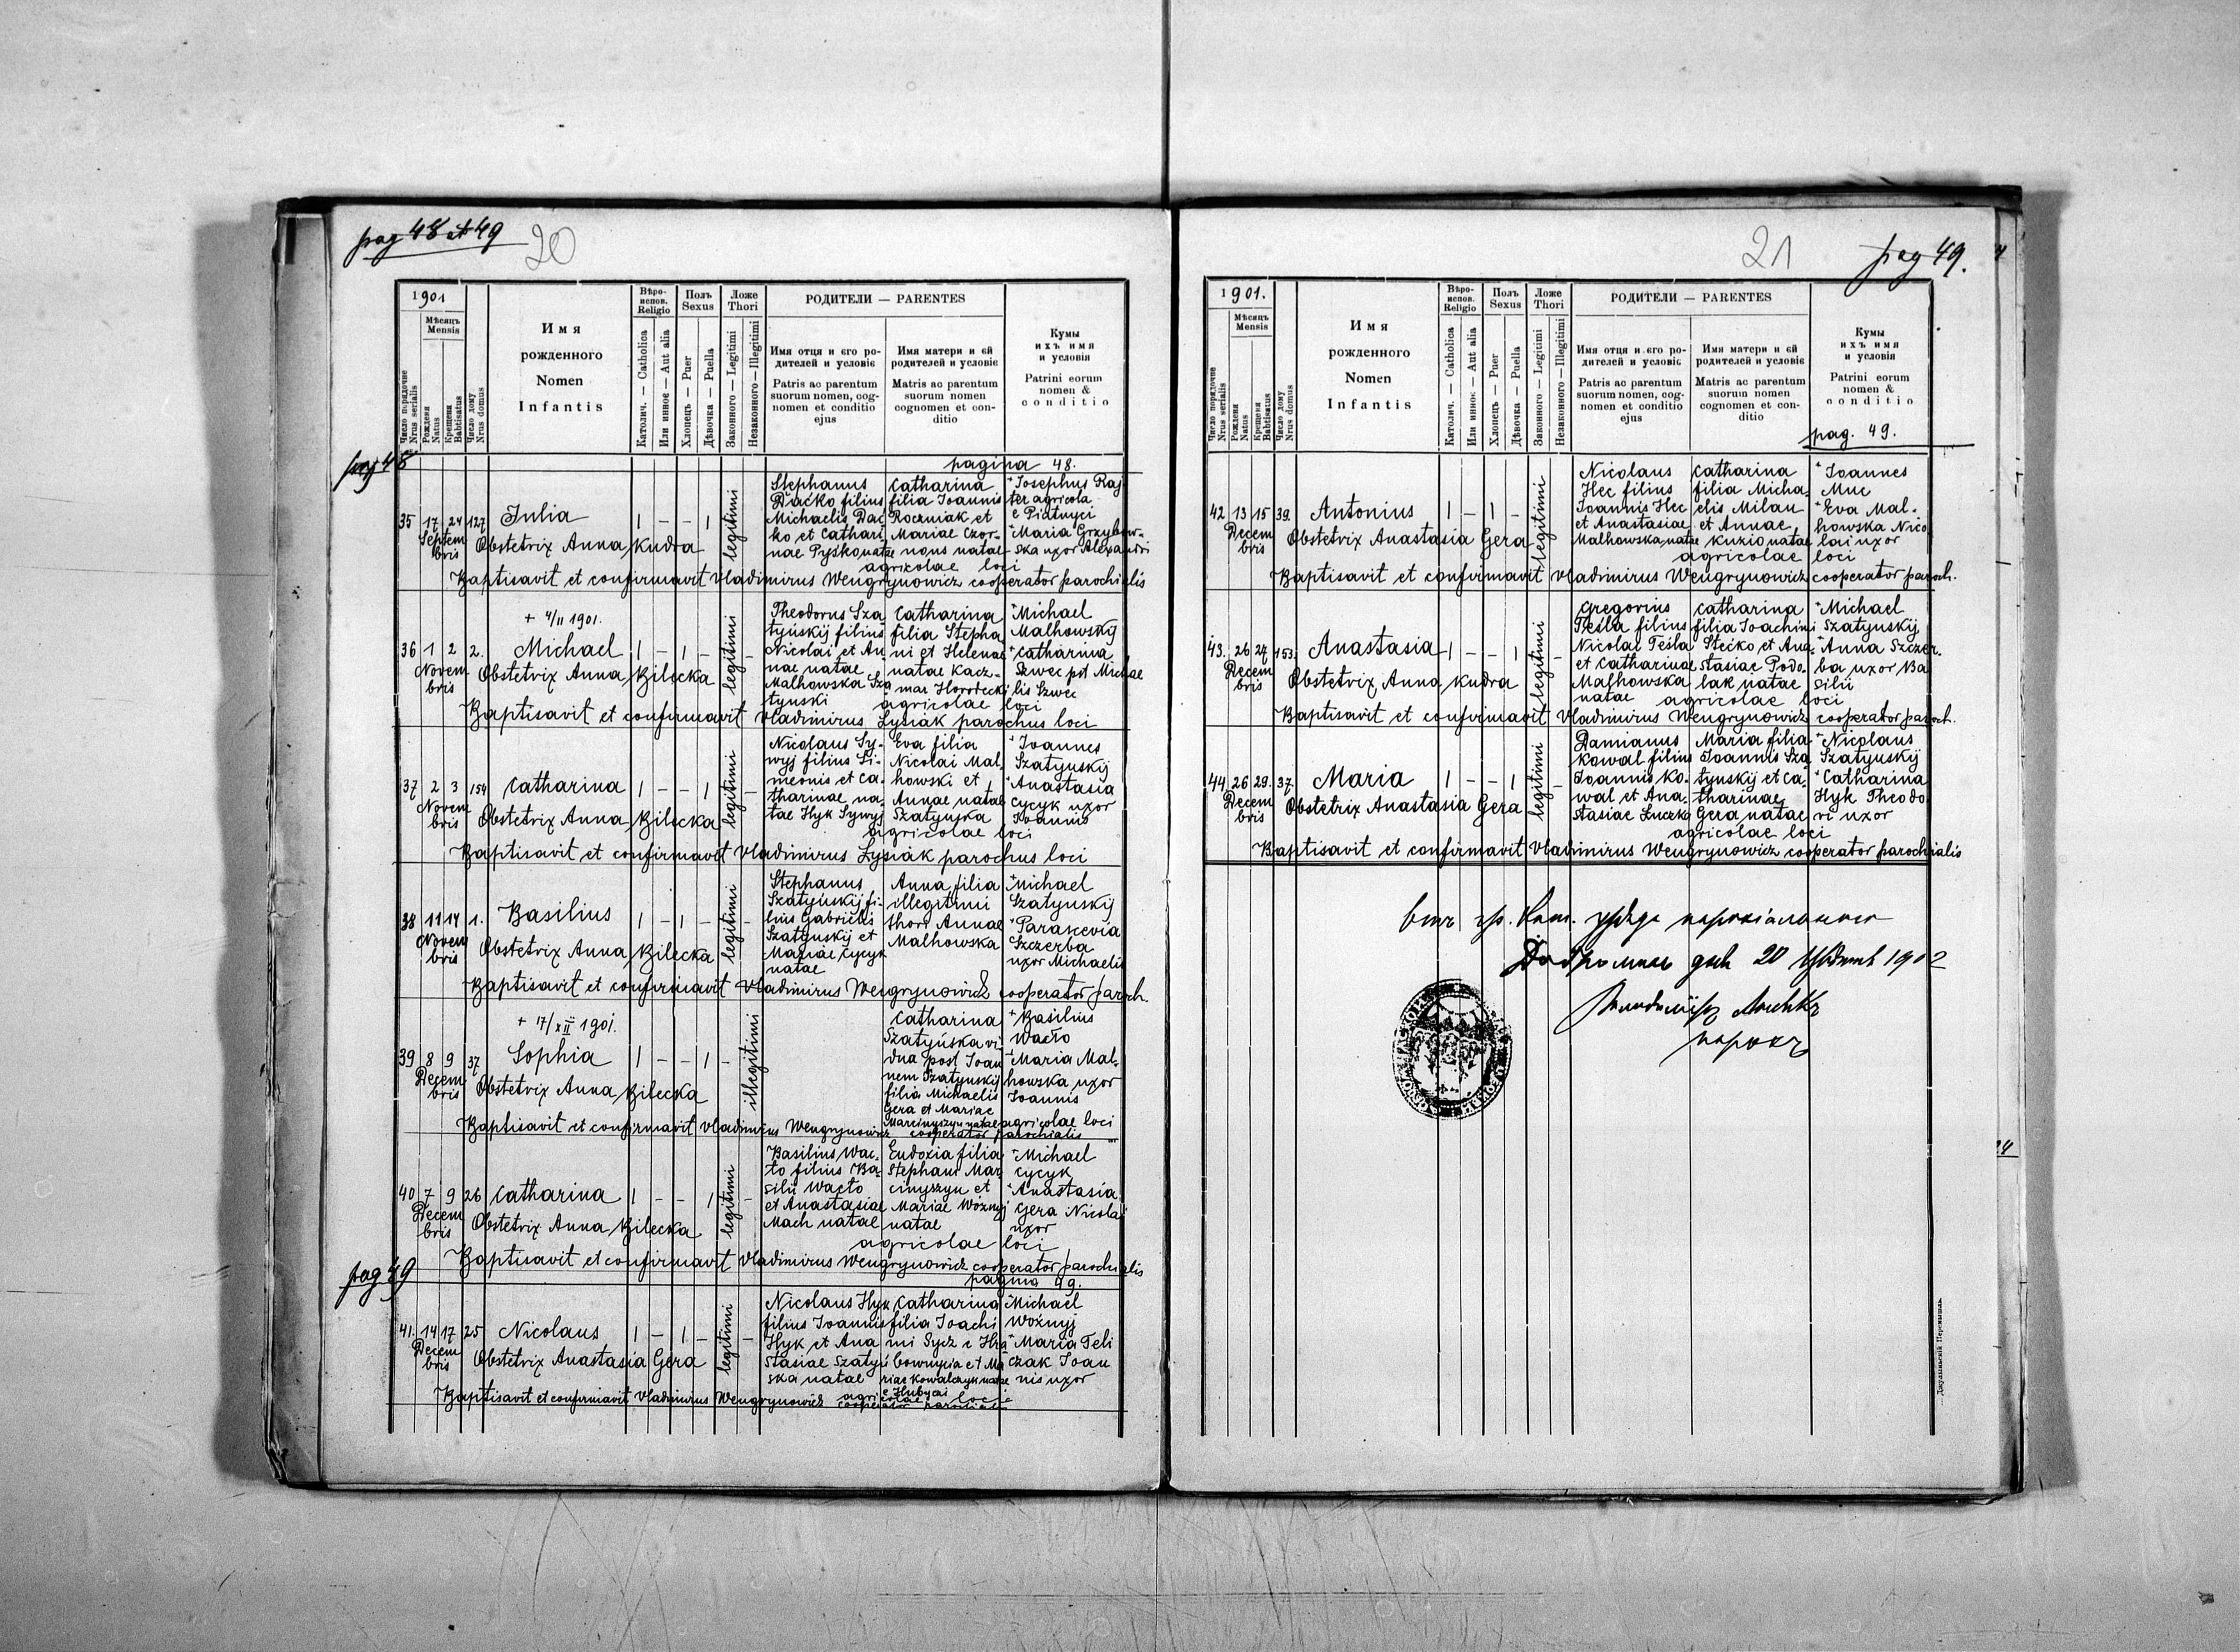 pag 48 et 49
20
1901
Мѣсяць
Mensis
Число порядочне
Nrus serialis
Рождєня
Natus
Крещєня
Babtisatus
Число дому
Nrus domus
Имя
рожденного
Nomen
Infantis
Вѣро-
испов.
Religio
Католич. — Catholica
Или инноє — Aut alia
Полъ
Sexus
Хлопець — Puer
Дѣвочка — Puella
Ложе
Thori
Законного — Legitimi
Незаконного — Illegitimi
РОДИТЕЛИ — PARENTES
Имя отця и єго ро-
дителей и условіє
Patris ac parentum
suorum nomen, cog-
nomen et conditio
ejus
Имя матери и єй
родителей и условіє
Matris ac parentum
suorum nomen
cognomen et con-
ditio
Кумы
ихъ имя
и условія
Patrini eorum
nomen &
conditio
pag 48
pagina 48.
35 17 24 127 Julia 1 – – 1 legitimi
Septem
bris
Obstetrix Anna Kudra
Stephanus
Daćko filius
Michaelis Dać
ko et Cathari
nae Pyśko natae
Catharina
filia Joannis
Roczniak et
Mariae Czor-
nous natae
+ Josephus Raj
ter agricola
e Piatnyci
+ Maria Grzybow-
ska uxor Alexandri
agricolae loci
Baptisavit et confirmavit Vladimirus Wengrynowicz cooperator parochialis
+ 4/11 1901.
36 1 2 2. Michael 1 – 1 – legitimi –
Novem
bris
Obstetrix Anna Bilecka
Theodorus Sza
tyńskij filius
Nicolai et An
nae natae
Malhowska Sza
tyński
Catharina
filia Stepha
ni et Helenae
natae Kacz-
mar Horodeckj
+ Michael
Malhowskij
+ Catharina
Szwec pst Michae
lis Szwec
agricolae loci
Baptisavit et confirmavit Vladimirus Łysiak parochus loci
37 2 3 154 Catharina 1 – – 1 legitimi –
Novem
bris
Obstetrix Anna Bilecka
Nicolaus Sy-
wyj filius Si-
meonis et Ca-
tharinae na-
tae Hyk Sywyj
Eva filia
Nicolai Mal-
howski et
Annae natae
Szatyńska
+ Joannes
Szatyńskij
+ Anastasia
Cycyk uxor
Joannis
agricolae loci
Baptisavit et confirmavit Vladimirus Łysiak parochus loci
38 11 14 1. Basilius 1 – 1 – legitimi –
Novem
bris
Obstetrix Anna Bilecka
Stephanus
Szatyńskij fi-
lius Gabrielis
Szatyńskij et
Mariae Cycyk
natae
Anna filia
illegitimi
thori Annae
Malhowska
+ Michael
Szatynskij
+ Parascevia
Szczerba
uxor Michaelis
Baptisavit et confirmavit Vladimirus Wengrynowicz cooperator paroch.
+ 17/XII 1901.
39 8 9 37 Sophia 1 – – 1 – illegitimi
Decem
bris
Obstetrix Anna Bilecka
Catharina
Szatyńska vi-
dua post Joan
nem Szatynskij
filia Michaelis
Gera et Mariae
Marcinyszyn natae
+ Basilius
Wacto
+ Maria Mal-
howska uxor
Joannis
agricolae loci
Baptisavit et confirmavit Vladimirus Wengrynowicz cooperator parochialis
40 7 9 26 Catharina 1 – – 1 legitimi –
Decem
bris
Obstetrix Anna Bilecka
Basilius Wac-
to filius Ba-
silii Wacto
et Anastasiae
Mach natae
Eudoxia filia
Stephani Mar
cinyszyn et
Mariae Woźnyj
natae
+ Michael
Cycyk
+ Anastasia
Gera Nicolai
uxor
agricolae loci
Baptisavit et confirmavit Vladimirus Wengrynowicz cooperator parochialis
pag 49
pagina 49.
41. 14 17 25 Nicolaus 1 – 1 – legitimi –
Decem
bris
Obstetrix Anastasia Gera
Nicolaus Hyk
filius Joannis
Hyk et Ana
stasiae Szatyń
ska natae
Catharina
filia Joachi
mi Sycz e Hra
bownycia et Ma
riae Kowalczyk natae
e Hubyczi
+ Michael
Woźnyj
+ Maria Teli
czak Joan
nis uxor
agricolae loci
Baptisavit et confirmavit Vladimirus Wengrynowicz cooperator parochialis
21
pag 49.
1901.
Мѣсяць
Mensis
Число порядочне
Nrus serialis
Рождєня
Natus
Крещєня
Babtisatus
Число дому
Nrus domus
Имя
рожденного
Nomen
Infantis
Вѣро-
испов.
Religio
Католич. — Catholica
Или инноє — Aut alia
Полъ
Sexus
Хлопець — Puer
Дѣвочка — Puella
Ложе
Thori
Законного — Legitimi
Незаконного — Illegitimi
РОДИТЕЛИ — PARENTES
Имя отця и єго ро-
дителей и условіє
Patris ac parentum
suorum nomen, cog-
nomen et conditio
ejus
Имя матери и єй
родителей и условіє
Matris ac parentum
suorum nomen
cognomen et con-
ditio
Кумы
ихъ имя
и условія
Patrini eorum
nomen &
conditio
pag. 49.
42 13 15 39. Antonius 1 – 1 – legitimi –
Decem
bris
Obstetrix Anastasia Gera
Nicolaus
Hec filius
Joannis Hec
et Anastasiae
Malhowska natae
Catharina
filia Micha-
elis Milan
et Annae
Kuzio natae
+ Joannes
Muc
+ Eva Mal-
howska Nico
lai uxor
agricolae loci
Baptisavit et confirmavit Vladimirus Wengrynowicz cooperator paroch.
43. 26 27 153. Anastasia 1 – – 1 legitimi –
Decem
bris
Obstetrix Anna Kudra
Gregorius
Tesla filius
Nicolai Tesla
et Catharinae
Malhowska
natae
Catharina
filia Joachimi
Stećko et Ana-
stasiae Podo-
lak natae
+ Michael
Szatynskij
+ Anna Szczer-
ba uxor Ba
silii
agricolae loci
Baptisavit et confirmavit Vladimirus Wengrynowicz cooperator paroch.
44 26 29. 37. Maria 1 – – 1 legitimi –
Decem
bris
Obstetrix Anastasia Gera
Damianus
Kowal filius
Joannis Ko-
wal et Ana-
stasiae Łucka
Maria filia
Joannis Sza
tynskij et Ca-
tharinae
Gera natae
+ Nicolaus
Szatynskij
+ Catharina
Hyk Theodo
ri uxor
agricolae loci
Baptisavit et confirmavit Vladimirus Wengrynowicz cooperator parochialis
гр. кат.
Добромиль дня 20 1902
парохъ